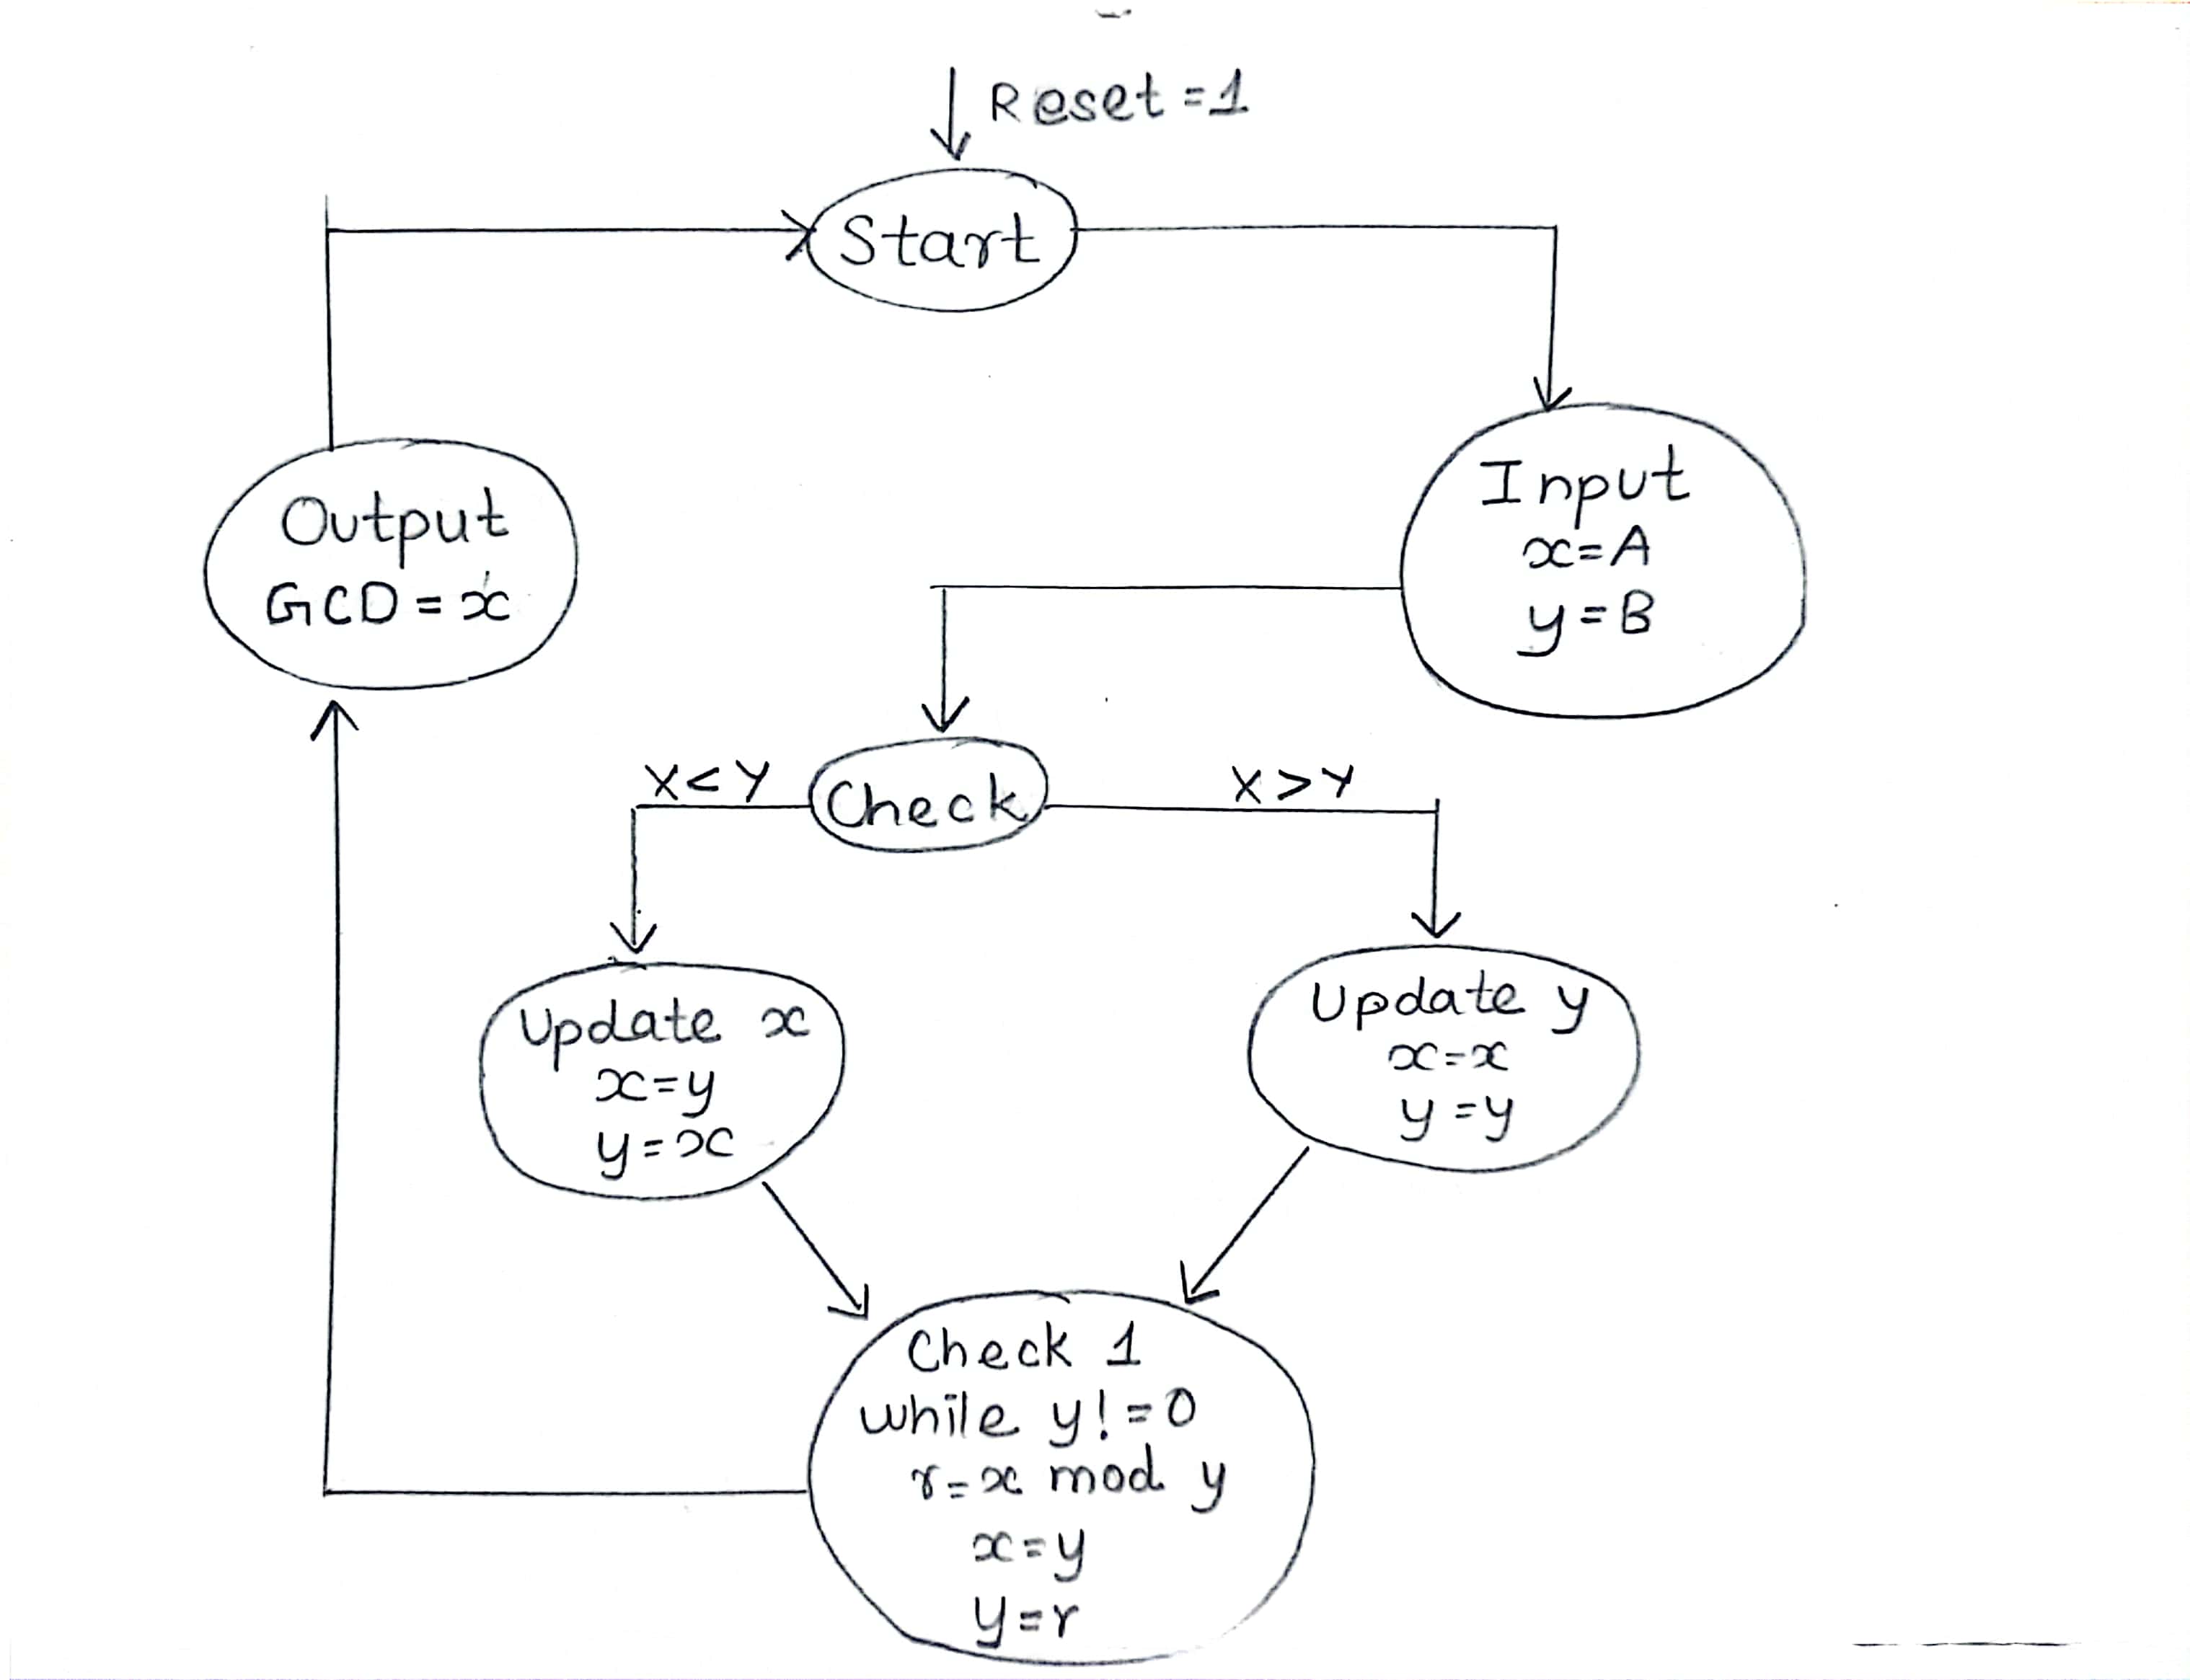 Reset = 1
Start
Input
x = A
y = B
Output
GCD = x
Check
X < Y
X > Y
Update x
x = y
y = x
Update y
x = x
y = y
Check 1
while y! = 0
r = x mod y
x = y
y = r